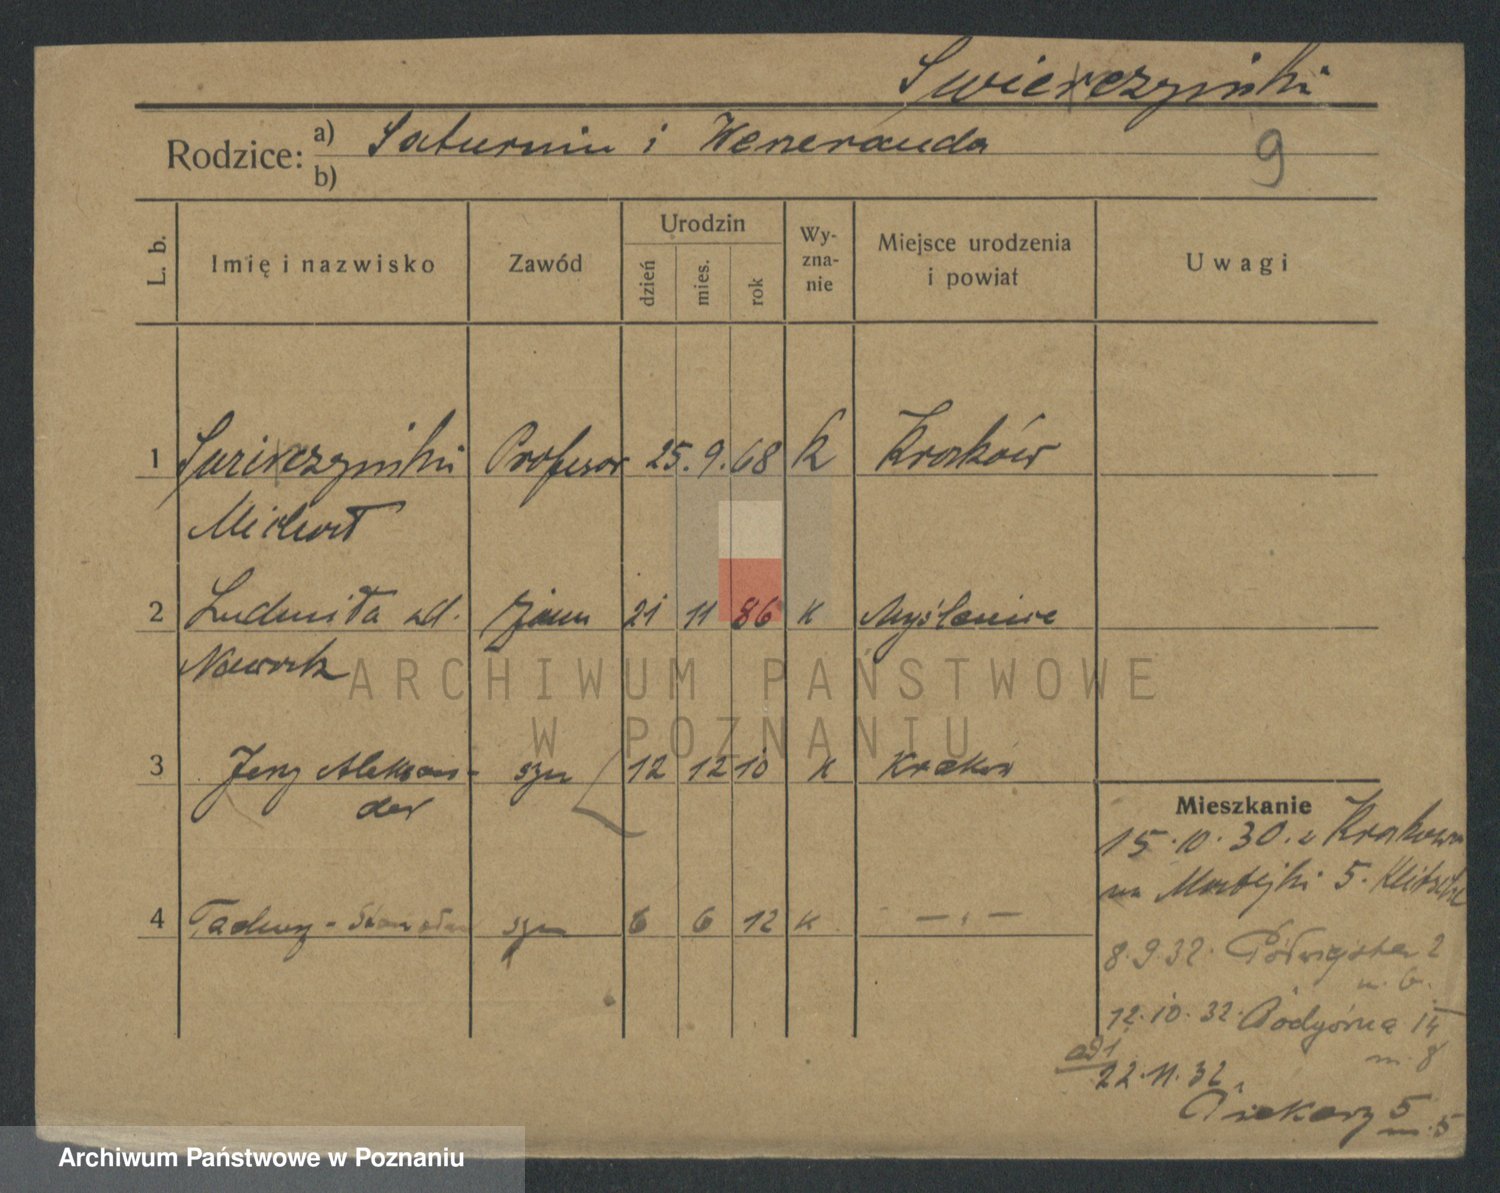 Swierczyński
Rodzice: a) Saturnin i Weneranda
b)
9
L. b.
Imię i nazwisko
Zawód
Urodzin
dzień
mies.
rok
Wy-
zna-
nie
Miejsce urodzenia
i powiat
Uwagi
1 Swierczyński Profesor 25. 9. 68 k Kraków
Michał
2 Ludmiła ud. żona 21 11 86 k Myślenice
Nowak
3 Jerzy Aleksan- syn 12 12 10 k Kraków
der
4 Tadeusz - Stanisław syn 6 6 12 k — " —
Mieszkanie
15.10.30. z Krakowa
na Matejki 5.
8.9.32. Półwiejska 2
m. 6.
12.10.32. Podgórna 14
m. 8
ad 1
22.11.32.
Piekary 5
m. 5
ARCHIWUM PAŃSTWOWE
W POZNANIU
Archiwum Państwowe w Poznaniu